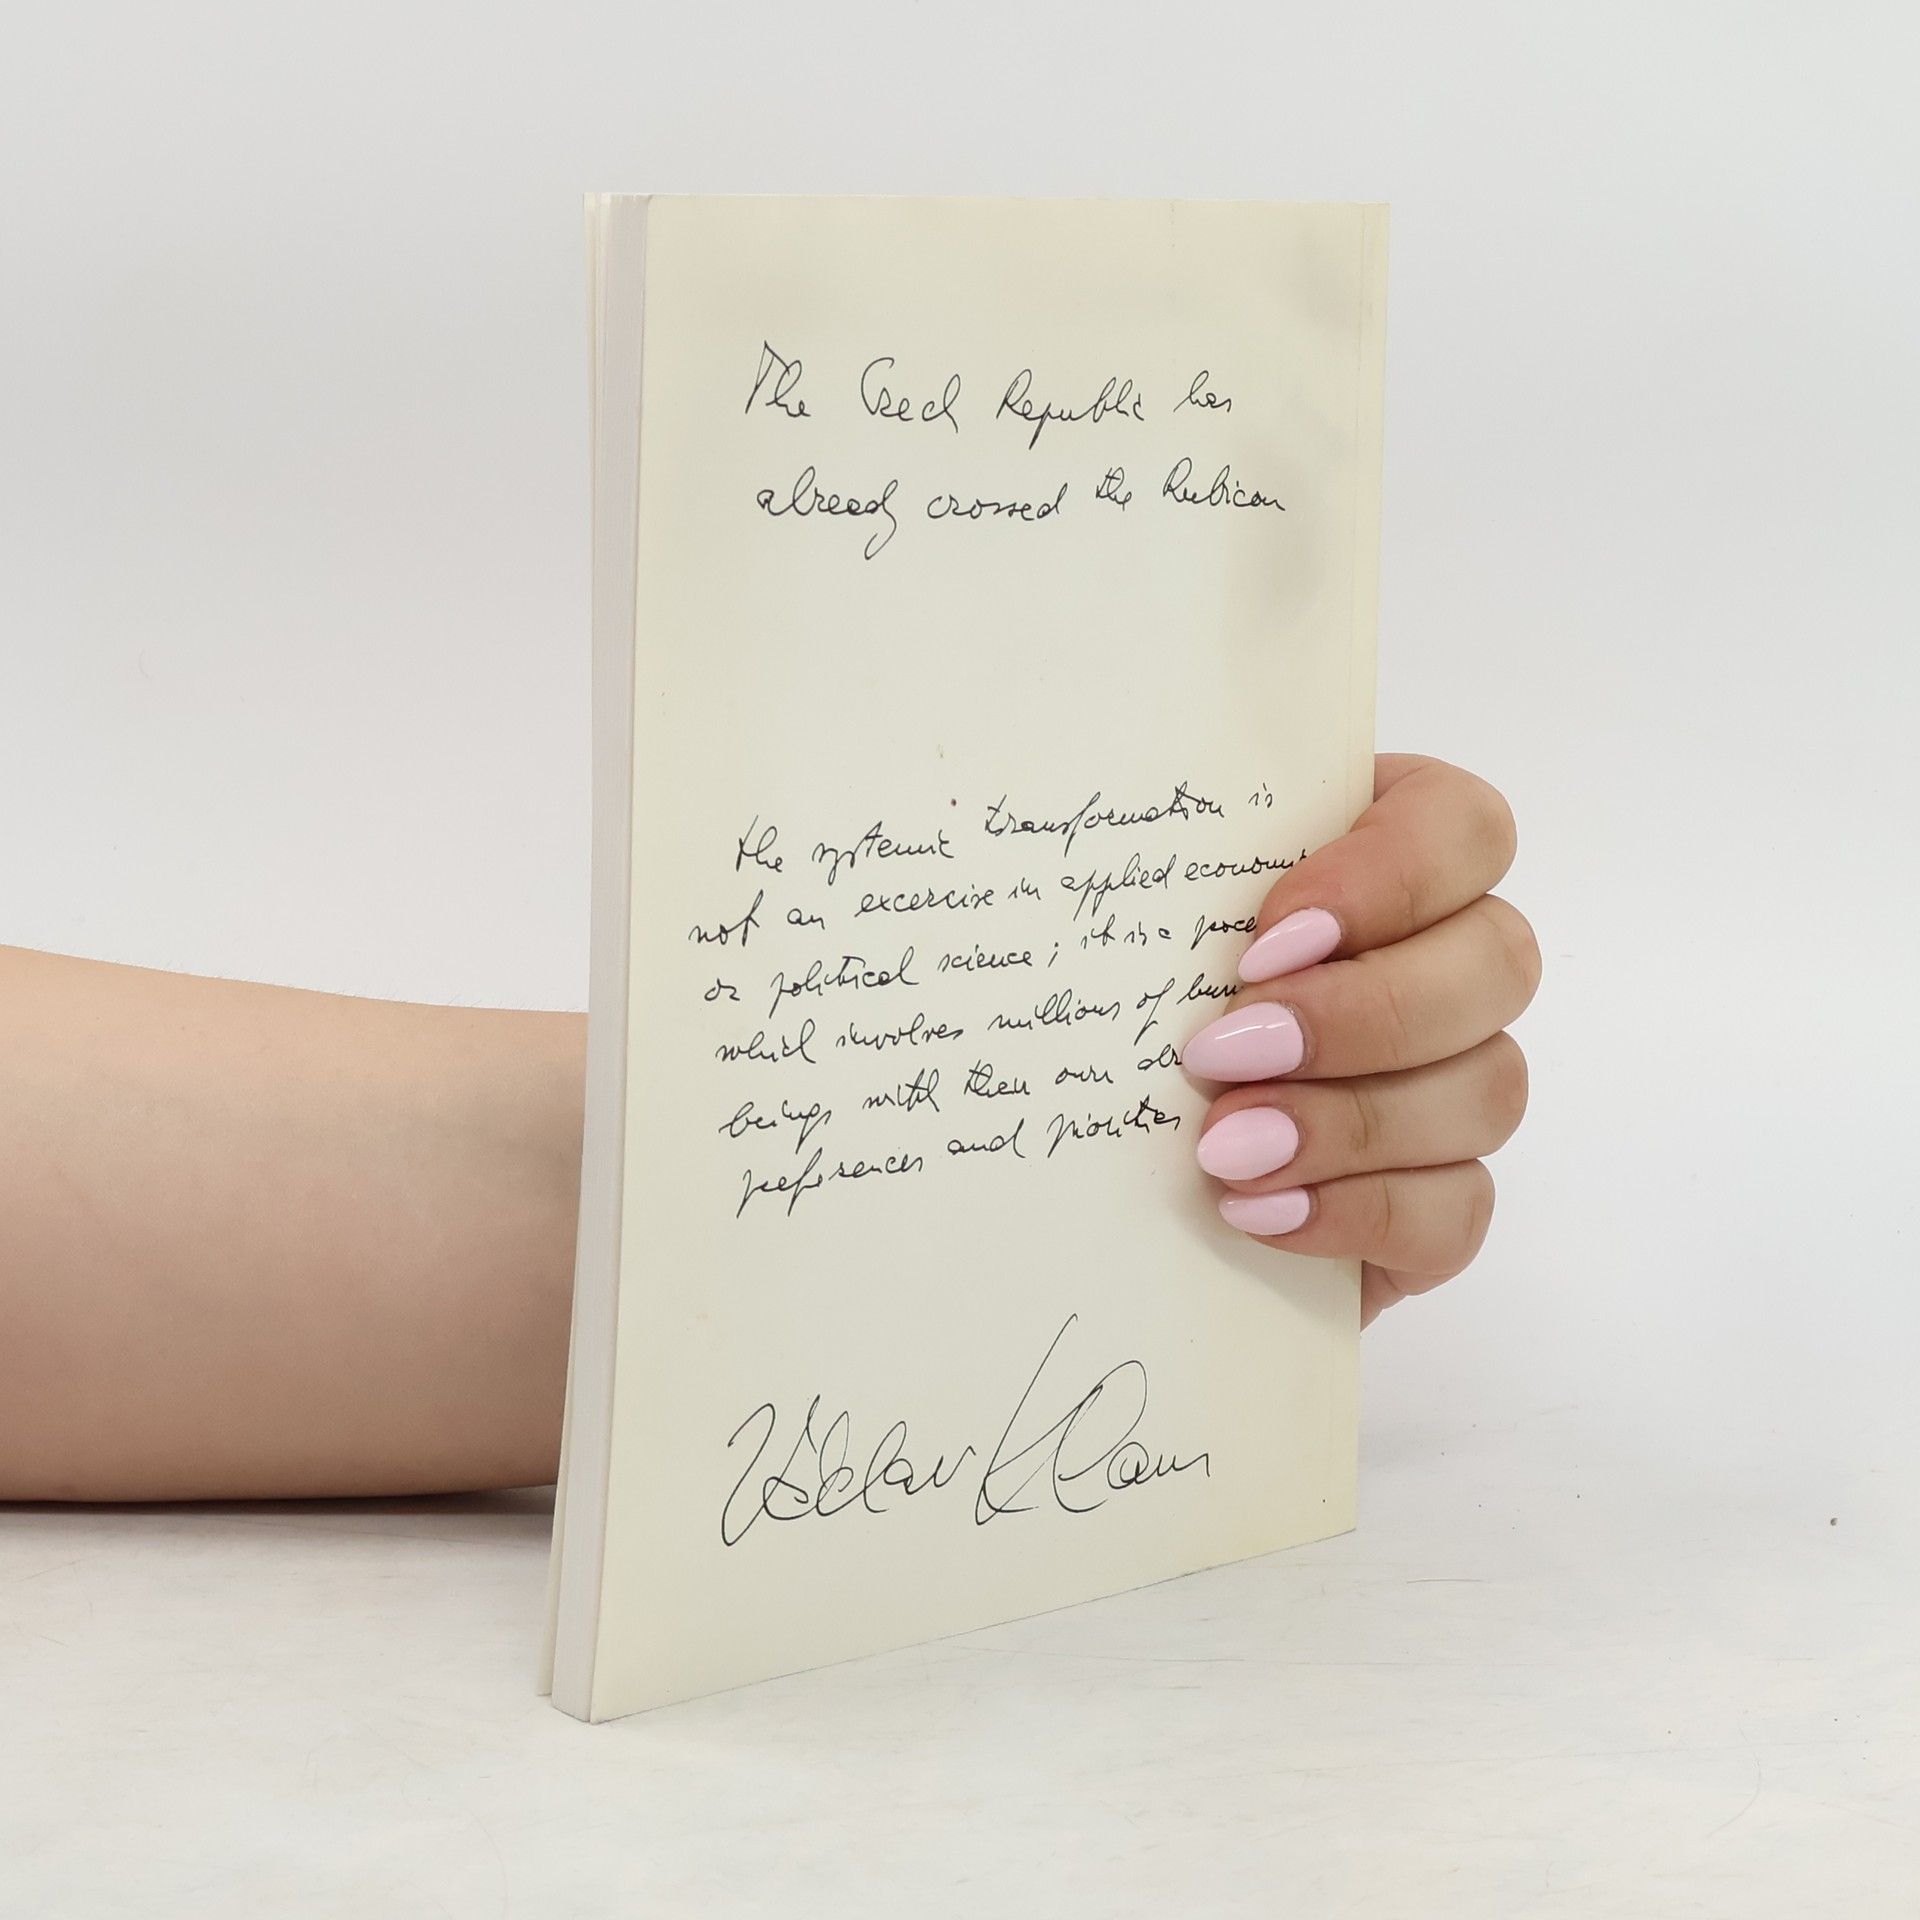 The Czech Republic has
already crossed the Rubicon
the systemic transformation is
not an excercise in applied economi
or political science; it is a proce
which involves millions of hum
beings with their own dr
preferences and priorities
Václav Klaus